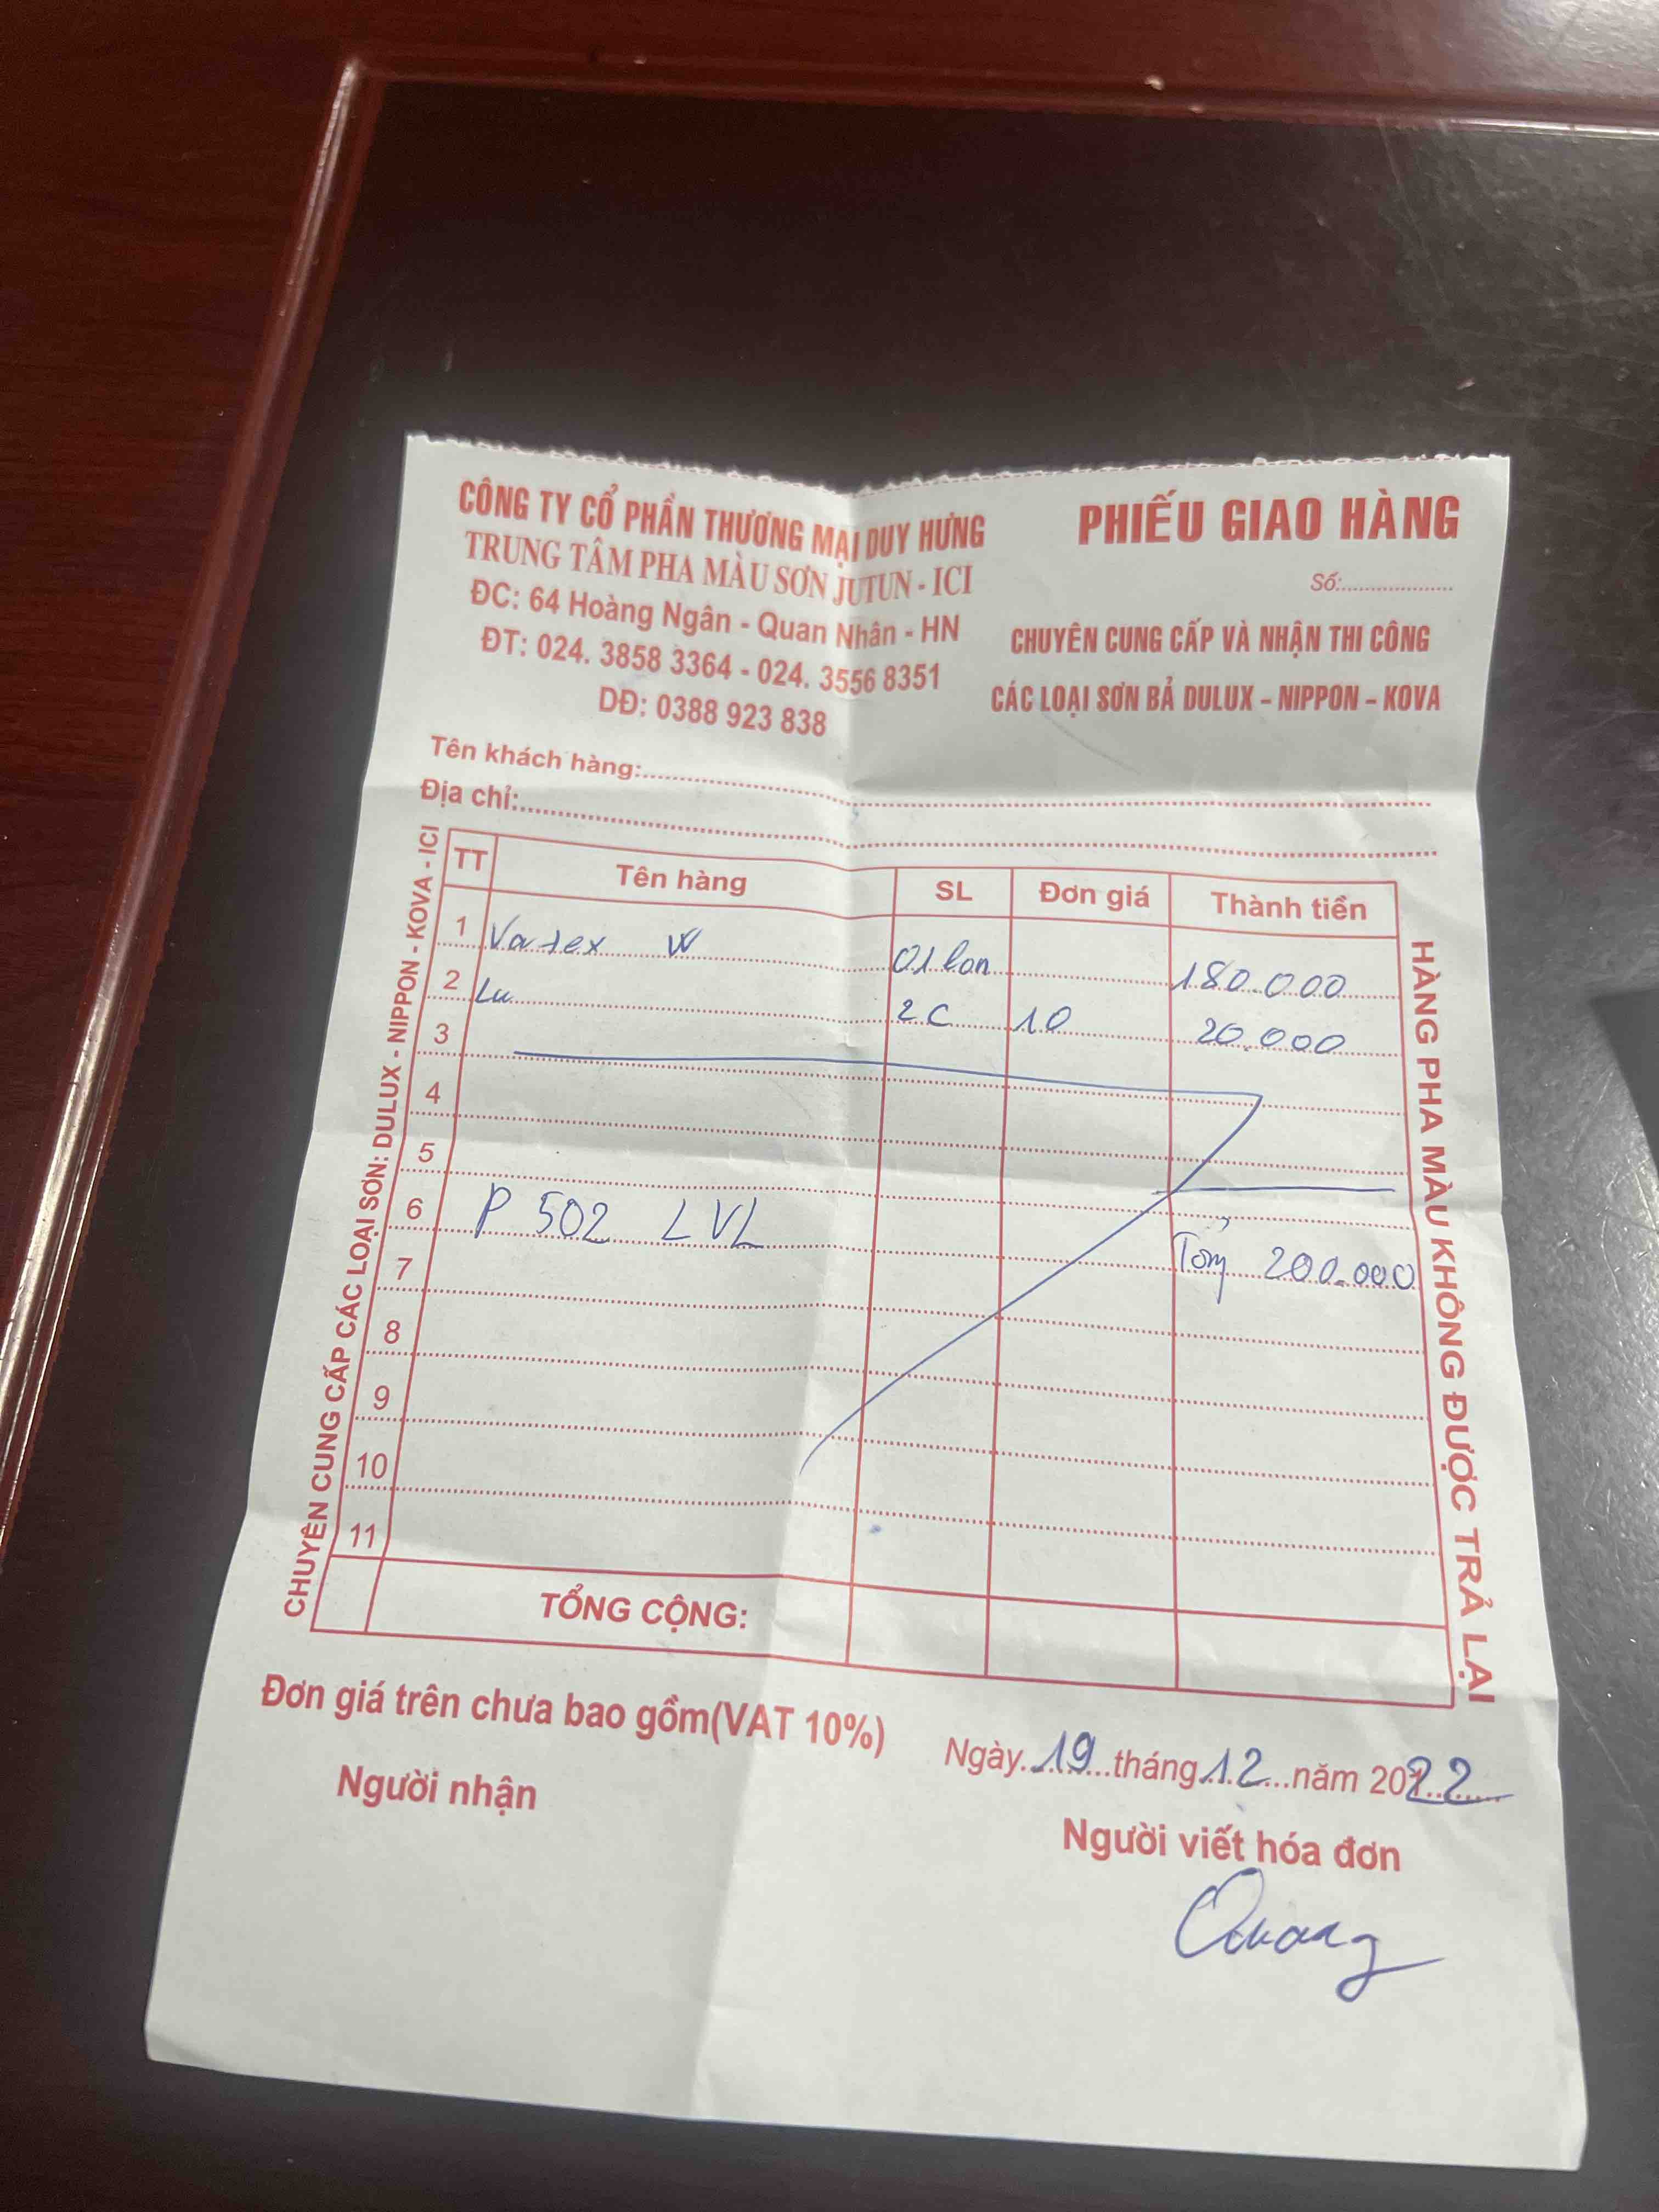 CÔNG TY CỔ PHẦN THƯƠNG MẠI DUY HƯNG
TRUNG TÂM PHA MÀU SƠN JUTUN - ICI
ĐC: 64 Hoàng Ngân - Quan Nhân - HN
ĐT: 024. 3858 3364 - 024. 3556 8351
DĐ: 0388 923 838
PHIẾU GIAO HÀNG
Số:....................
CHUYÊN CUNG CẤP VÀ NHẬN THI CÔNG
CÁC LOẠI SƠN BẢ DULUX – NIPPON – KOVA
Tên khách hàng:
Địa chỉ:
CHUYÊN CUNG CẤP CÁC LOẠI SƠN: DULUX - NIPPON - KOVA - ICI
TT Tên hàng SL Đơn giá Thành tiền
1 Vatex W 01 lon 180.000
2 Lu 2C 10 20.000
3
4
5
6 P 502 LVL Tổng 200.000
7
8
9
10
11
TỔNG CỘNG:
HÀNG PHA MÀU KHÔNG ĐƯỢC TRẢ LẠI
Đơn giá trên chưa bao gồm(VAT 10%)
Ngày 19 tháng 12 năm 2022
Người nhận
Người viết hóa đơn
Quang